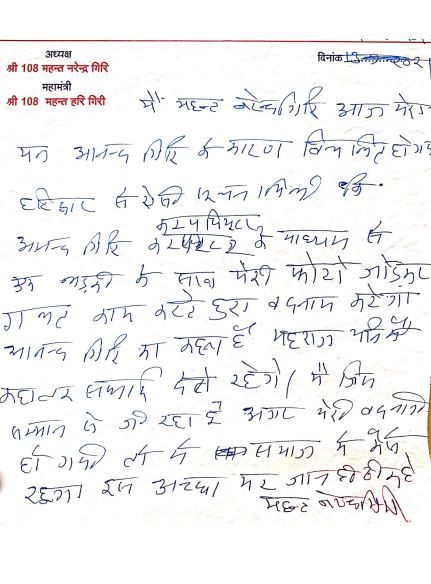 अध्यक्ष
श्री 108 महन्त नरेन्द्र गिरि
महामंत्री
श्री 108 महन्त हरि गिरी
दिनांक 13
मैं महन्त नरेन्द्र गिरि आज मेरा
मन आनन्द गिरि के कारण विचलित हो गया
हरिद्वार से ऐसी सूचना मिली कि
कम्प्यूटर
आनन्द गिरि के माध्यम से
एक लड़की के साथ मेरी फोटो जोड़कर
गलत काम करते हुए बदनाम करेगा
आनन्द गिरि का कहना है महराज यानि मैं
कहां तक सफाई देते रहेगे। मैं जिस
सम्मान से जी रहा हूँ अगर मेरी बदनामी
हो गयी तो मैं समाज में कैसे
रहूगा इस अच्छा मर जाना ही ही
महन्त